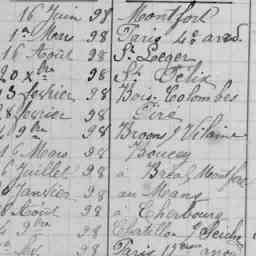 16 Juin 98 Montfort
1er Mars 98 Paris 4e arrd.
16 Août 98 St. Leger
20 Xbre 98 St. Felix
3 février 98 Bois-Colombes
8 février 98
9bre 98 Broons / Vilaine
16 Mars 98 Boucey
6 Juillet 98 à Bréal Montfort
Janvier 98 au Mans
8 Août 98 à Cherbourg
9bre 98 Chatillon / Seiche
98 Paris